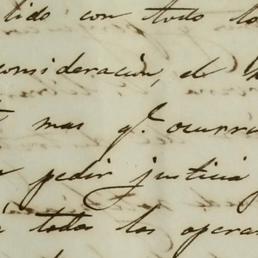 lido con todo lo
consideración, de
mas q.e ocurra
pedir justicia
a todos los opera